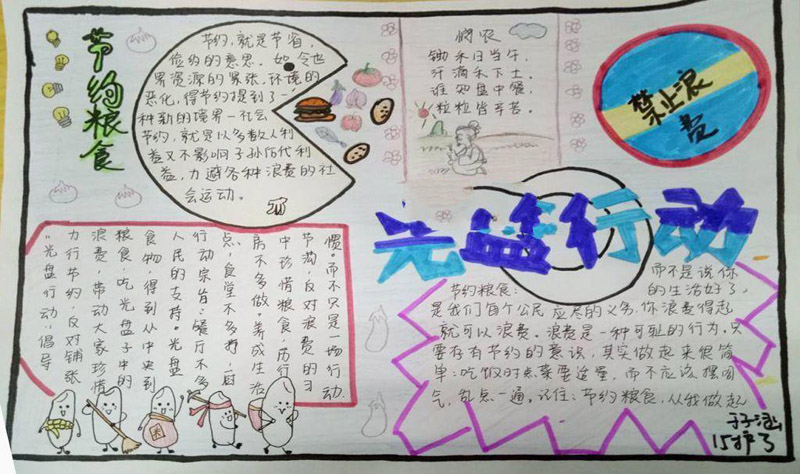 节约粮食
节约,就是节省,
俭约的意思。如今世
界资源的紧张,环境的
恶化,得节约提到了一
种新的境界—社会
节约,就是以多数人利
益又不影响子孙后代利
益,力避各种浪费的社
会运动。
悯农
锄禾日当午,
汗滴禾下土。
谁知盘中餐,
粒粒皆辛苦。
禁止浪
费
光盘行动
"光盘行动,倡导
力行节约,反对铺张
浪费,带动大家珍惜
粮食,吃光盘子中的
食物,得到从中央到
人民的支持。光盘
行动宗旨:餐厅不多
点,食堂不多打,厨
房不多做。养成生活
中珍惜粮食,厉行
节约,反对浪费的习
惯。而不只是一场行动.
节约粮食:
是我们每个公民应尽的义务,
而不是说你
的生活好了,
你浪费得起
就可以浪费。浪费是一种可耻的行为。只
要存有节约的意识,其实做起来很简
单:吃饭时点菜要适量,而不应该摆阔
气,乱点一通。记住:节约粮食,从我做起
15护3